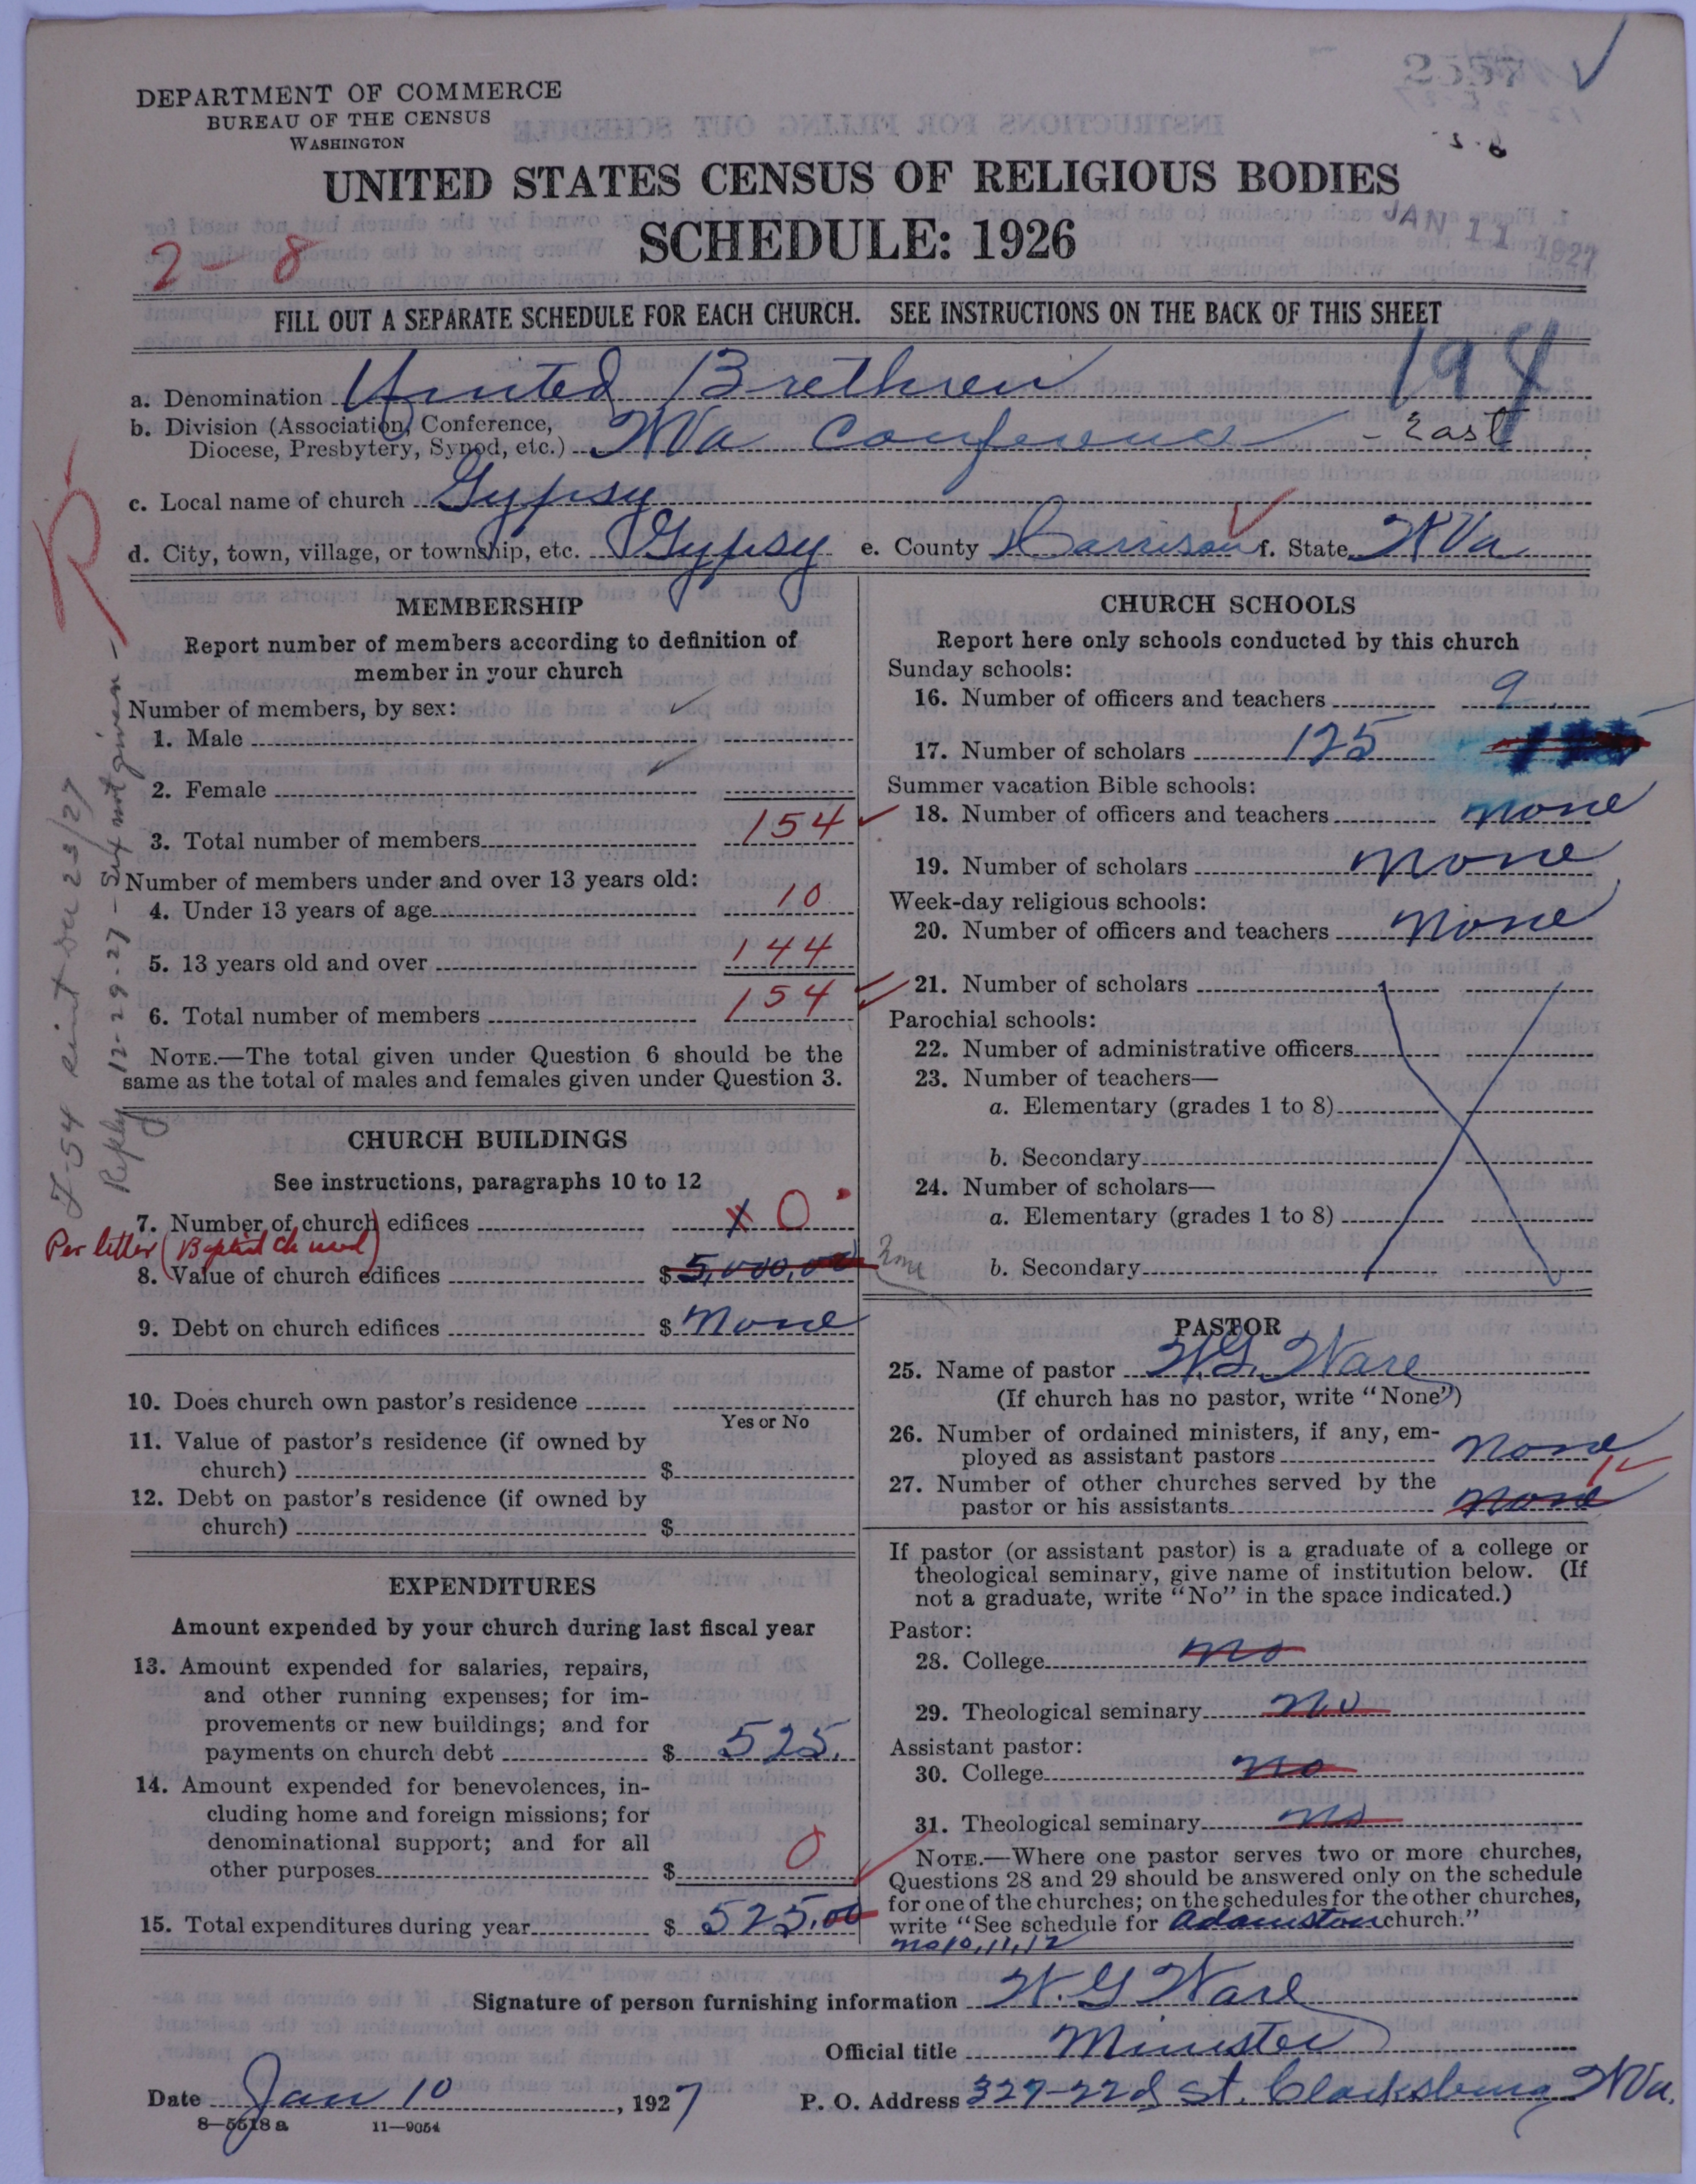 DEPARTMENT OF COMMERCE
BUREAU OF THE CENSUS
WASHINGTON
UNITED STATES CENSUS OF RELIGIOUS BODIES
SCHEDULE: 1926
JAN 11 1927
2-8
FILL OUT A SEPARATE SCHEDULE FOR EACH CHURCH. SEE INSTRUCTIONS ON THE BACK OF THIS SHEET
194
a. Denomination United Brethren
b. Division (Association, Conference,
Diocese, Presbytery, Synod, etc.) W Va Conference - East
c. Local name of church Gypsy
d. City, town, village, or township, etc. Gypsy e. County Harrison f. State W Va
MEMBERSHIP
Report number of members according to definition of
member in your church
Number of members, by sex:
1. Male
2. Female
3. Total number of members 154
Number of members under and over 13 years old:
4. Under 13 years of age 10
5. 13 years old and over 144
6. Total number of members 154
NOTE.—The total given under Question 6 should be the
same as the total of males and females given under Question 3.
Reply 12-29-27 - Sex not given -
CHURCH BUILDINGS
See instructions, paragraphs 10 to 12
7. Number of church edifices 0
Per letter (Baptist Ch used)
8. Value of church edifices $ 5,000.00
9. Debt on church edifices $ None
10. Does church own pastor's residence
Yes or No
11. Value of pastor's residence (if owned by
church) $
12. Debt on pastor's residence (if owned by
church) $
EXPENDITURES
Amount expended by your church during last fiscal year
13. Amount expended for salaries, repairs,
and other running expenses; for im-
provements or new buildings; and for
payments on church debt $ 525.
14. Amount expended for benevolences, in-
cluding home and foreign missions; for
denominational support; and for all
other purposes $ 0
15. Total expenditures during year $ 525.00
CHURCH SCHOOLS
Report here only schools conducted by this church
Sunday schools:
16. Number of officers and teachers 9
17. Number of scholars 125
Summer vacation Bible schools:
18. Number of officers and teachers none
19. Number of scholars none
Week-day religious schools:
20. Number of officers and teachers none
21. Number of scholars
Parochial schools:
22. Number of administrative officers
23. Number of teachers—
a. Elementary (grades 1 to 8)
b. Secondary
24. Number of scholars—
a. Elementary (grades 1 to 8)
b. Secondary
PASTOR
25. Name of pastor W.G. Ware
(If church has no pastor, write "None")
26. Number of ordained ministers, if any, em-
ployed as assistant pastors none
27. Number of other churches served by the
pastor or his assistants none 1
If pastor (or assistant pastor) is a graduate of a college or
theological seminary, give name of institution below. (If
not a graduate, write "No" in the space indicated.)
Pastor:
28. College no
29. Theological seminary no
Assistant pastor:
30. College no
31. Theological seminary no
NOTE.—Where one pastor serves two or more churches,
Questions 28 and 29 should be answered only on the schedule
for one of the churches; on the schedules for the other churches,
write "See schedule for Adamston church."
no 10, 11, 12
Signature of person furnishing information W. G Ware
Official title Minister
Date Jan 10, 1927 P. O. Address 327-22d St. Clarksburg W Va.
8—5518 a 11—9054